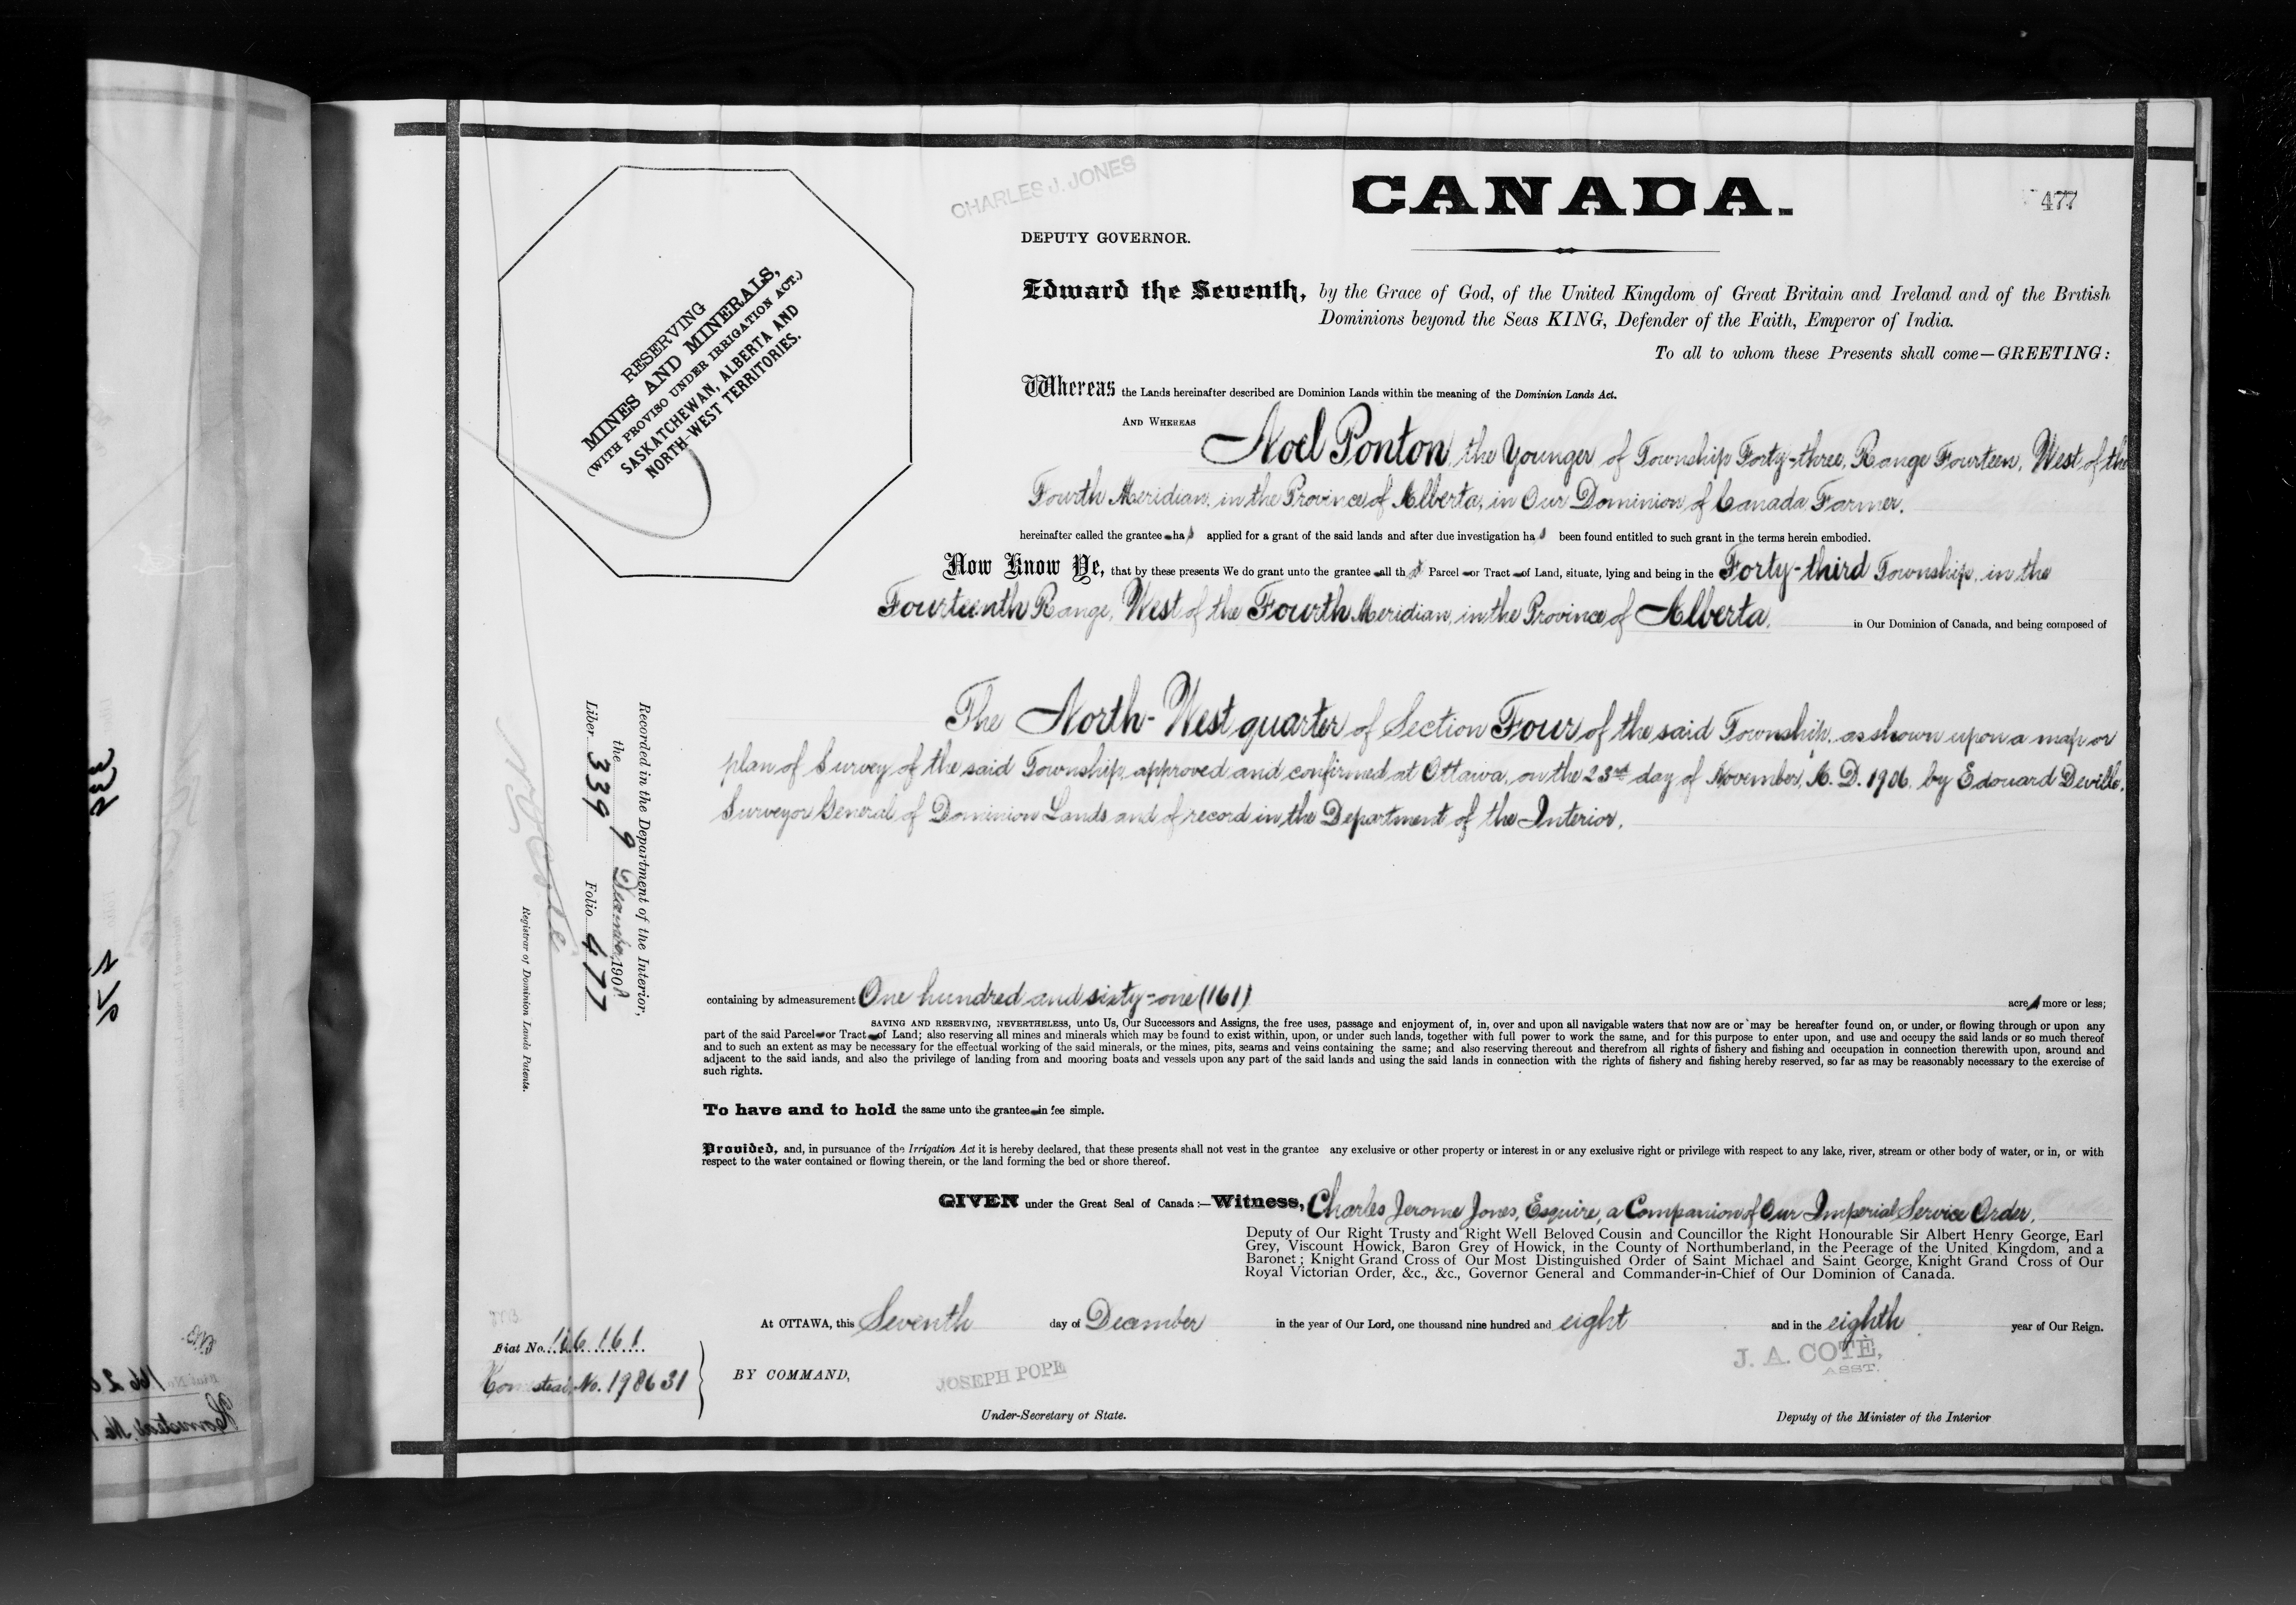 CHARLES J. JONES
CANADA.
477
DEPUTY GOVERNOR.
RESERVING
MINES AND MINERALS,
(WITH PROVISO UNDER IRRIGATION ACT.)
SASKATCHEWAN, ALBERTA AND
NORTH-WEST TERRITORIES.
Edward the Seventh, by the Grace of God, of the United Kingdom of Great Britain and Ireland and of the British
Dominions beyond the Seas KING, Defender of the Faith, Emperor of India.
To all to whom these Presents shall come—GREETING:
Whereas the Lands hereinafter described are Dominion Lands within the meaning of the Dominion Lands Act.
AND WHEREAS
Noel Ponton, the Younger of Township Forty-three, Range Fourteen, West of the
Fourth Meridian, in the Province of Alberta, in Our Dominion of Canada Farmer.
hereinafter called the grantee has applied for a grant of the said lands and after due investigation has been found entitled to such grant in the terms herein embodied.
Now Know Ye, that by these presents We do grant unto the grantee all that Parcel or Tract of Land, situate, lying and being in the Forty-third Township, in the
Fourteenth Range, West of the Fourth Meridian, in the Province of Alberta, in Our Dominion of Canada, and being composed of
The North-West quarter of Section Four of the said Township, as shown upon a map or
plan of Survey of the said Township, approved and confirmed at Ottawa, on the 23rd day of November, A. D. 1906, by Edouard Deville,
Surveyor General of Dominion Lands and of record in the Department of the Interior.
Recorded in the Department of the Interior,
the 9 December 1908
Liber 339 Folio 477
Registrar of Dominion Lands Patents.
containing by admeasurement One hundred and sixty-one (161) acres more or less;
SAVING AND RESERVING, NEVERTHELESS, unto Us, Our Successors and Assigns, the free uses, passage and enjoyment of, in, over and upon all navigable waters that now are or may be hereafter found on, or under, or flowing through or upon any
part of the said Parcel or Tract of Land; also reserving all mines and minerals which may be found to exist within, upon, or under such lands, together with full power to work the same, and for this purpose to enter upon, and use and occupy the said lands or so much thereof
and to such an extent as may be necessary for the effectual working of the said minerals, or the mines, pits, seams and veins containing the same; and also reserving thereout and therefrom all rights of fishery and fishing and occupation in connection therewith upon, around and
adjacent to the said lands, and also the privilege of landing from and mooring boats and vessels upon any part of the said lands and using the said lands in connection with the rights of fishery and fishing hereby reserved, so far as may be reasonably necessary to the exercise of
such rights.
To have and to hold the same unto the grantee in fee simple.
Provided, and, in pursuance of the Irrigation Act it is hereby declared, that these presents shall not vest in the grantee any exclusive or other property or interest in or any exclusive right or privilege with respect to any lake, river, stream or other body of water, or in, or with
respect to the water contained or flowing therein, or the land forming the bed or shore thereof.
GIVEN under the Great Seal of Canada:—Witness, Charles Jerome Jones, Esquire, a Companion of Our Imperial Service Order,
Deputy of Our Right Trusty and Right Well Beloved Cousin and Councillor the Right Honourable Sir Albert Henry George, Earl
Grey, Viscount Howick, Baron Grey of Howick, in the County of Northumberland, in the Peerage of the United Kingdom, and a
Baronet; Knight Grand Cross of Our Most Distinguished Order of Saint Michael and Saint George, Knight Grand Cross of Our
Royal Victorian Order, &c., &c., Governor General and Commander-in-Chief of Our Dominion of Canada.
At OTTAWA, this Seventh day of December in the year of Our Lord, one thousand nine hundred and eight and in the eighth year of Our Reign.
Fiat No. 166161
Homestead No. 198631
BY COMMAND,
JOSEPH POPE
Under-Secretary of State.
J. A. COTÉ,
ASST.
Deputy of the Minister of the Interior